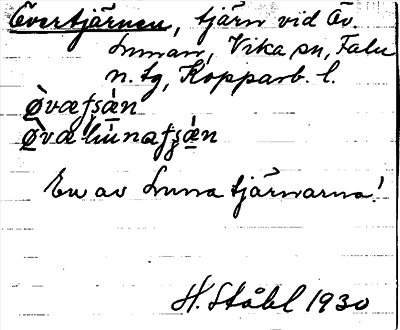 Övertjärnen, tjärn vid Öv.
Lunnan, Vika sn, Falu
n. tg, Kopparb. l.
En av Lunna tjärnarna!
H. Ståhl 1930